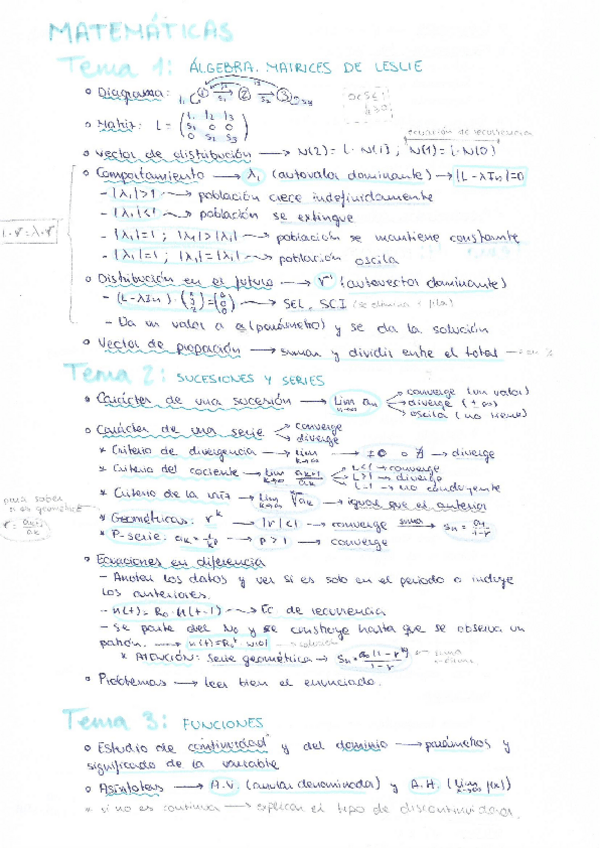 MATEMÁTICAS
Tema 1: ÁLGEBRA. MATRICES DE LESLIE
Diagrama: 1 2 3
Matriz: L = (l1 l2 l3
s1 0 0
0 s2 s3)
ecuación de recurrencia
Vector de distribución → N(2) = L · N(1) ; N(1) = L · N(0)
Comportamiento → λ1 (autovalor dominante) → |L - λIn| = 0
- |λ1| > 1 → población crece indefinidamente
- |λ1| < 1 → población se extingue
- |λ1| = 1 ; |λ1| > |λi| → población se mantiene constante
L · v = λ · v
- |λ1| = 1 ; |λ1| = |λi| → población oscila
Distribución en el futuro → (autovector dominante)
- (L - λIn) · (x y z) = (0 0 0) → SEL, SCI (se elimina 1 fila)
- Da un valor a α (parámetro) y se da la solución
Vector de proporción → suman y dividir entre el total
Tema 2: SUCESIONES Y SERIES
Carácter de una sucesión → Lim an
converge (un valor)
diverge (± ∞)
oscila (no tiene)
Carácter de una serie
converge
diverge
* Criterio de divergencia → Lim → ≠ 0 o ∄ → diverge
* Criterio del cociente → Lim ak+1/ak
L < 1 → converge
L > 1 → diverge
L = 1 → no concluyente
* Criterio de la raíz → Lim ᵏ√ak → igual que el anterior
para saber
si es geométrica
r = ak+1/ak
* Geométricas: r^k → |r| < 1 → converge suma → Sn = a1/1-r
* P-serie: ak = 1/k^p → p > 1 → converge
Ecuaciones en diferencia
- Anotar los datos y ver si es solo en el periodo o incluye
los anteriores.
- n(t) = R0 · n(t-1) → Ec de recurrencia
- Se parte del N0 y se construye hasta que se observa un
patrón. → n(t) = R0^t · n(0) → solución
* ATENCIÓN: Serie geométrica → Sn = a0(1-r^n)/1-r
Problemas → leer bien el enunciado.
Tema 3: FUNCIONES
Estudio de continuidad* y del dominio → parámetros y
significado de la variable
Asíntotas → A.V. (anular denominador) y A.H. (Lim f(x))
* si no es continua → explicar el tipo de discontinuidad.